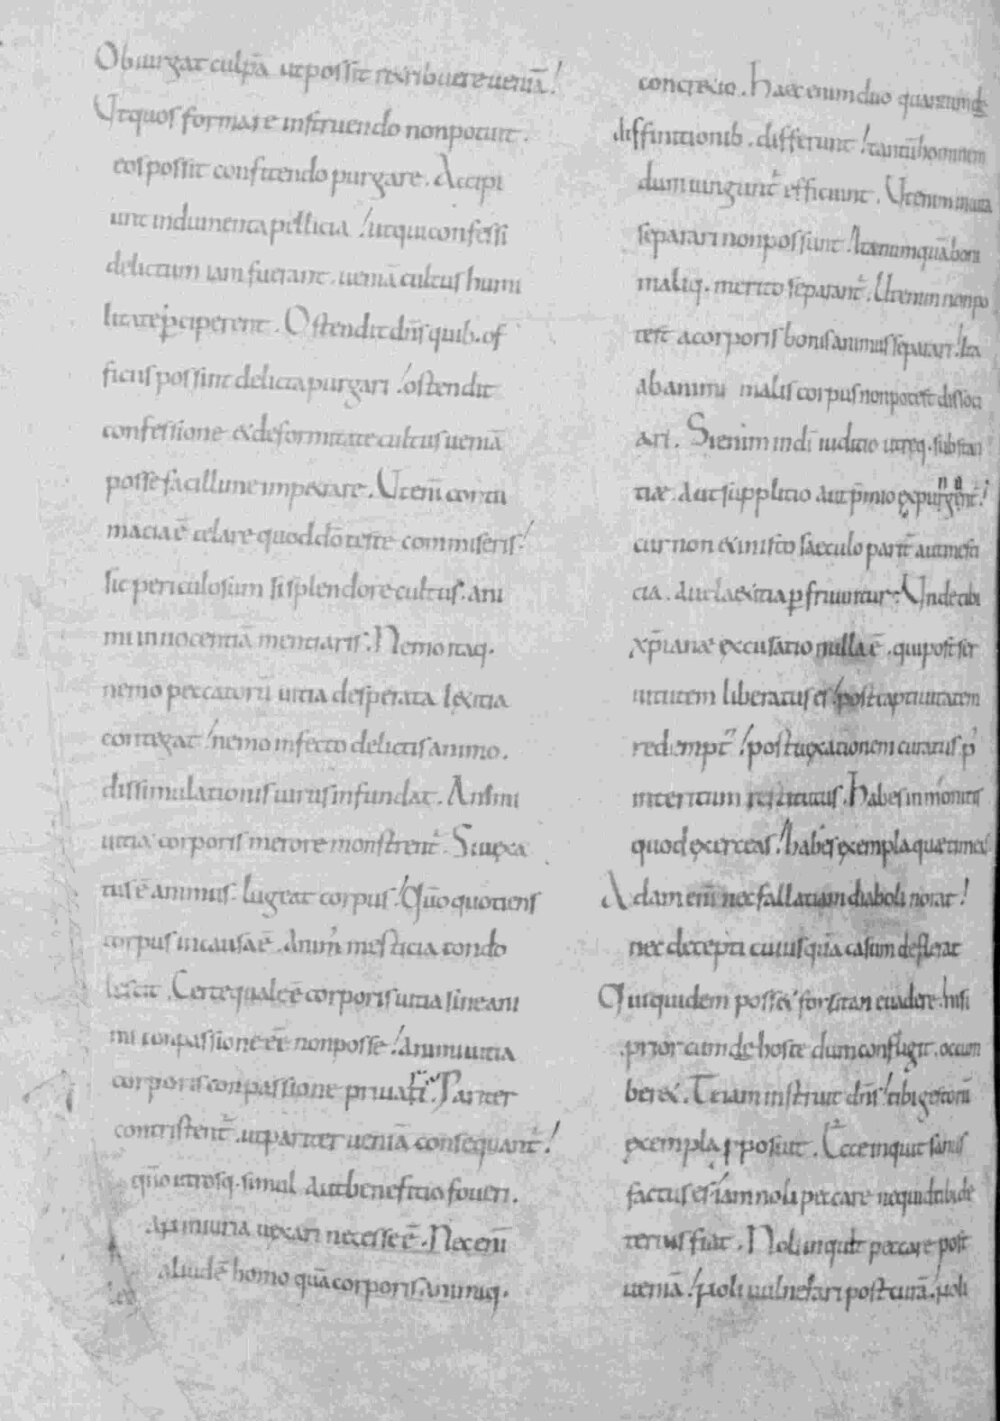 Obiurgat culpā ut possit retribuere ueniā!
Ut quos formare instruendo non potuit.
eos possit confitendo purgare. Accipi
unt indumenta pellicia! ut qui confessi
delictum iam fuerant. ueniā cultus humi
litate p̄ciperent. Ostendit dn̄s quib. of
ficiis possint delicta purgari! ostendit
confessione & deformitate cultus ueniā
posse facillime impetrare. Ut enī contu
macia ē celare quod dō teste commiseris!
sic periculosum si splendore cultus. ani
mi innocentiā mentiaris. Nemo itaq.
nemo peccatorū uitia desperata laetitia
contegat! nemo infecto delictis animo.
dissimulationis uirus infundat. Animi
uitia corporis merore monstrent̄. Si uexa
tus ē animus. lugeat corpus! Quō quotiens
corpus in causa ē. animi mesticia condo
lescit. Certe quale ē corporis uitia sine ani
mi conpassione eē non posse! animi uitia
corporis conpassione priuari. Pariter
contristent̄. ut pariter ueniā consequant̄!
quō utrosq. simul aut benefitio foueri.
aut iniuria uexari necesse ē. Nec enī
aliud ē homo quā corporis. animiq.
concretio. Haec enim duo quantum de
diffinitionib. differunt! tantū hominem
dum iungunt̄ efficiunt. Ut enim in uita
separari non possunt! Ita numquā boni
maliq. merito separant̄. Ut enim non po
test a corporis bonis animus separari! Ita
ab animi malis corpus non potest dissoci
ari. Si enim in dī iuditio utreq. substan
tiae. aut supplitio aut p̄mio expurgent̄!
cur non & in isto saeculo parit̄ aut mesti
cia. aut laetitia perfruuntur. Unde tibi
xp̄iane excusatio nulla ē. qui post ser
uitutem liberatus es! post captiuitatem
redempt'! post uexationem curatus p'
interitum restitutus. Habes in monitis
quod exerceas! habes exempla quae timeas
Adam enī nec fallatiam diaboli norat!
nec decepti cuiusquā casum deflerat
Qui quidem poss& forsitan euadere. nisi
prior cum de hoste dum confligit. occum
ber&. Te iam instruit dn̄s! tibi gestorū
exempla pposuit. Ecce inquit sanus
factus es! iam noli peccare ne quid tibi de
terius fiat. Noli inquit peccare post
ueniā! noli uulnerari post curā. noli